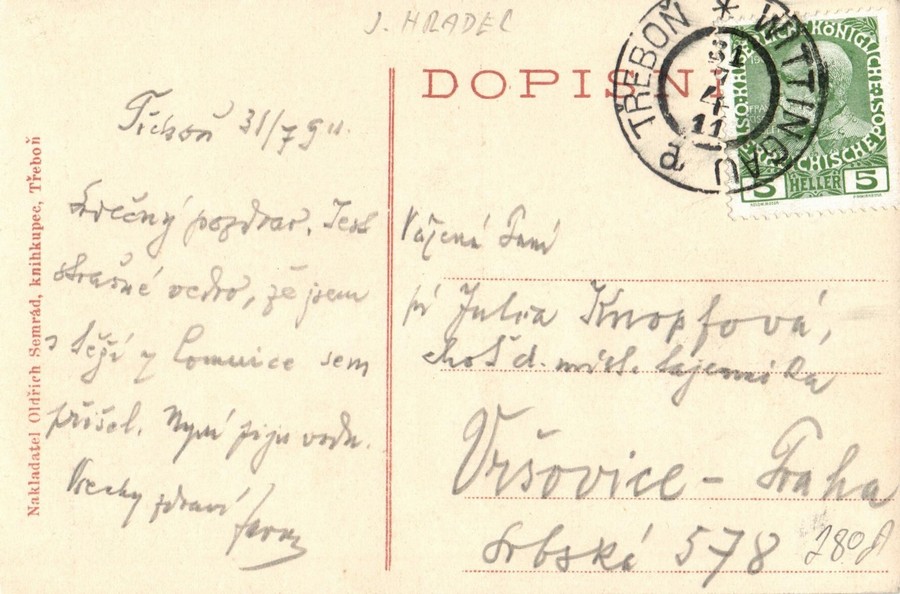 J. HRADEC
DOPISNI
TŘEBOŇ * WITTINGAU
31
4
11
KAISERLICH KÖNIGLICHE
ÖSTERREICHISCHE POST
5 HELLER 5
Třeboň 31/7 911.
Srdečný pozdrav. Jest
strašné vedro, že jsem
s těží z Lomnice sem
přišel. Nyní piju vodu.
Všechny zdraví
Nakladatel Oldřich Semrád, knihkupec, Třeboň
Vážená Paní
pí Julia Knopfová,
choť d. místs. tajemníka
Vršovice - Praha
Srbská 578